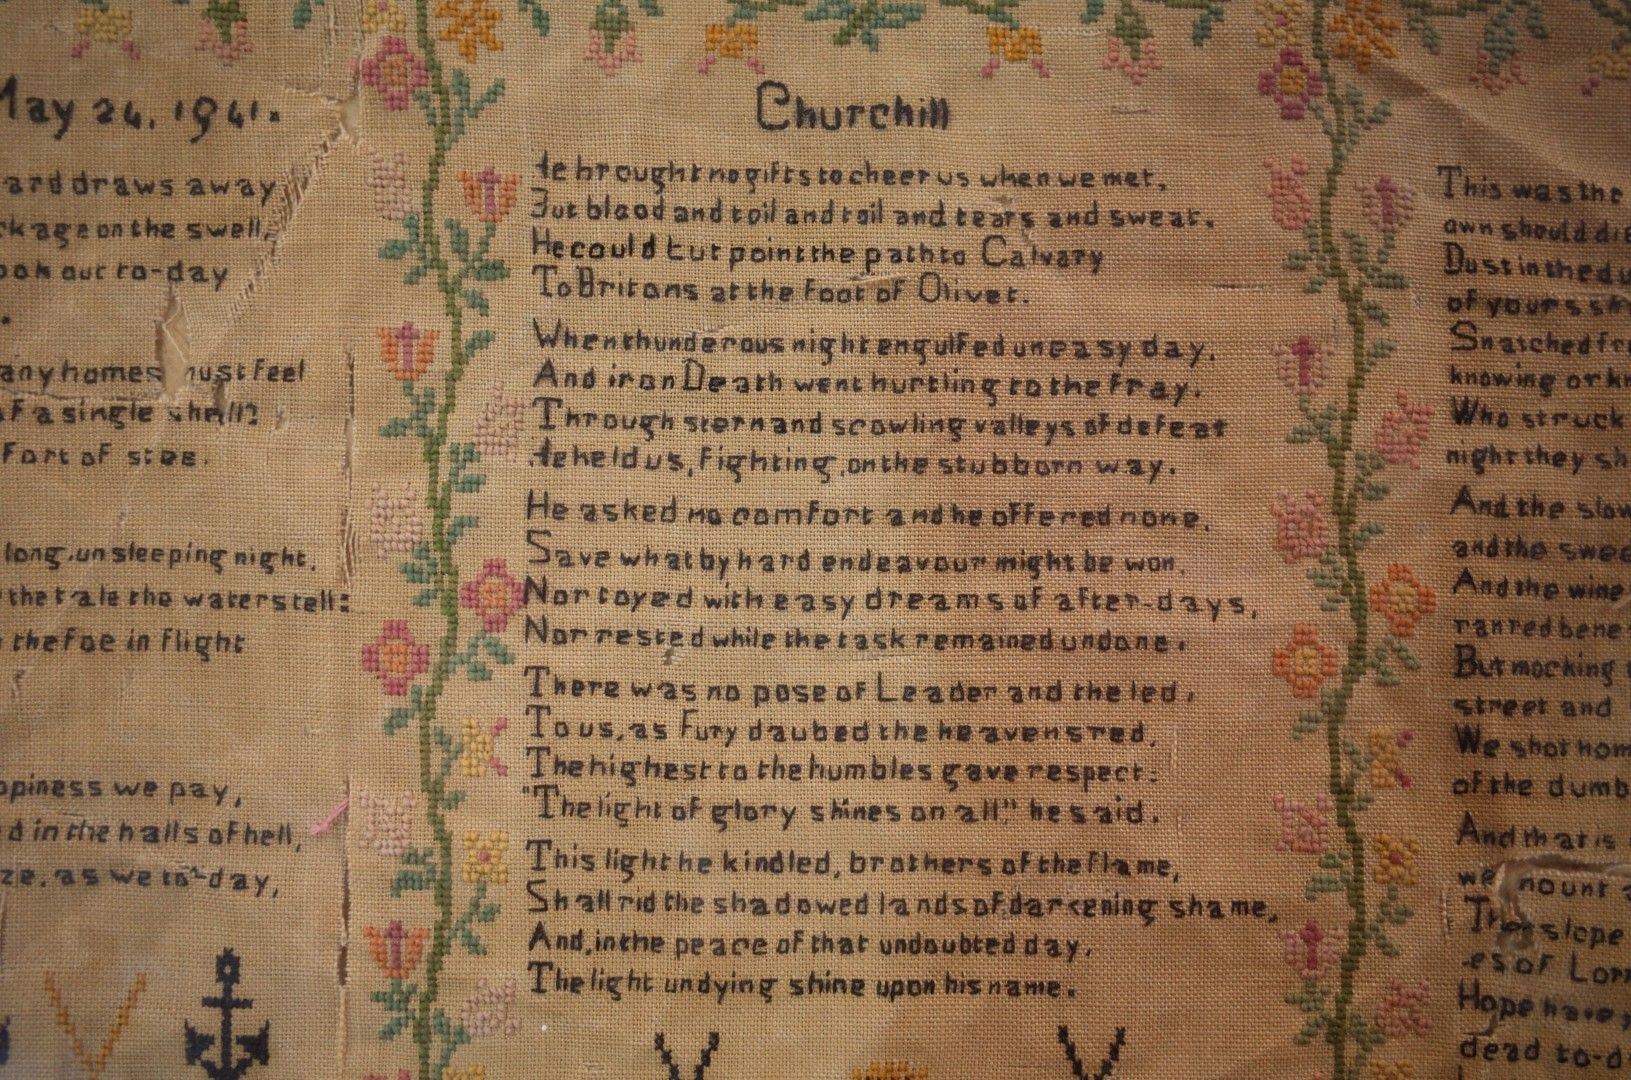 May 24, 1941.
ard draws away
kage on the swell,
ook out to-day
any homes must feel
of a single shell?
Fort of stee.
long, unsleeping night,
the tale the waters tell:
the foe in flight
ppiness we pay,
d in the halls of hell,
ze, as we to-day,
Churchill
He brought no gifts to cheer us when we met,
But blood and toil and toil and tears and sweat.
He could but point the path to Calvary
To Britons at the foot of Olivet.
When thunderous night engulfed uneasy day,
And iron Death went hurtling to the fray,
Through stern and scowling valleys of defeat
He held us, fighting, on the stubborn way.
He asked no comfort and he offered none,
Save what by hard endeavour might be won,
Nor toyed with easy dreams of after-days,
Nor rested while the task remained undone.
There was no pose of Leader and the led,
To us, as Fury daubed the heavens red,
The highest to the humbles gave respect:
"The light of glory shines on all," he said.
This light he kindled, brothers of the flame,
Shall rid the shadowed lands of darkening shame,
And, in the peace of that undoubted day,
The light undying shine upon his name.
V
V V
This was the
own should die
Dust in the du
of yours
Snatched fr
knowing or kn
Who struck
night they sh
And the slow
and the swee
And the wine
ran red bene
But mocking
street and
We shot hom
of the dumb
And that is
we mount
The slope
-es of Lorr
Hope have
dead to-d